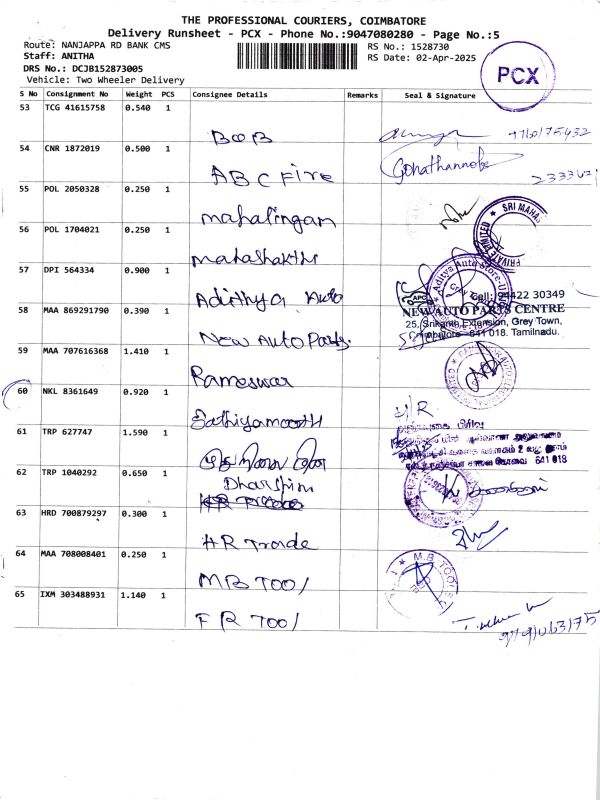 THE PROFESSIONAL COURIERS, COIMBATORE
Delivery Runsheet - PCX - Phone No.:9047080280 - Page No.:5
Route: NANJAPPA RD BANK CMS
RS No.: 1528730
Staff: ANITHA
RS Date: 02-Apr-2025
DRS No.: DCJB152873005
Vehicle: Two Wheeler Delivery
PCX
S No Consignment No Weight PCS Consignee Details Remarks Seal & Signature
53 TCG 41615758 0.540 1
BOB
54 CNR 1872019 0.500 1
ABC Fire
55 POL 2050328 0.250 1
mahalingam
56 POL 1704021 0.250 1
mahashakthi
SRI MAHA
PRIVATE LIMITED
57 DPI 564334 0.900 1
Adithya Auto
Aditya Auto Store
58 MAA 869291790 0.390 1
New Auto Parts.
APC
Cell: 94422 30349
NEW AUTO PARTS CENTRE
25, Srikanth Extension, Grey Town,
Coimbatore - 641 018. Tamilnadu.
59 MAA 707616368 1.410 1
Rameswar
60 NKL 8361649 0.920 1
Sathiyamoorth
61 TRP 627747 1.590 1
641 018
62 TRP 1040292 0.650 1
Dharshini
63 HRD 700879297 0.300 1
HR Trade
64 MAA 708008401 0.250 1
MB Tool
M.B TOOL
65 IXM 303488931 1.140 1
FR Tool